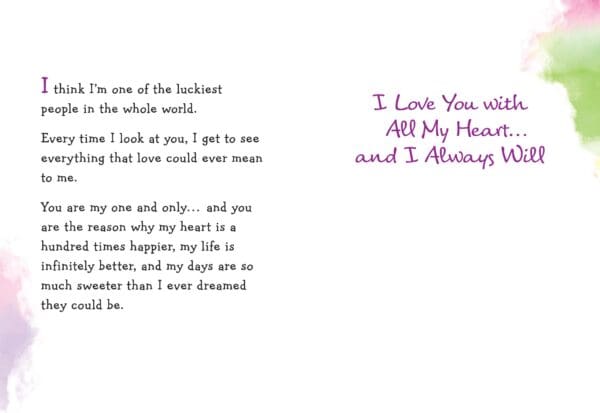 I think I'm one of the luckiest
people in the whole world.
Every time I look at you, I get to see
everything that love could ever mean
to me.
You are my one and only... and you
are the reason why my heart is a
hundred times happier, my life is
infinitely better, and my days are so
much sweeter than I ever dreamed
they could be.
I Love You with
All My Heart...
and I Always Will